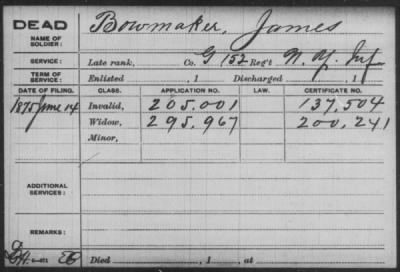 DEAD Bowmaker, James
NAME OF
SOLDIER:
SERVICE: Late rank, Co. G 152 Reg't N. Y. Inf
TERM OF
SERVICE: Enlisted , 1 Discharged , 1
DATE OF FILING. CLASS. APPLICATION NO. LAW. CERTIFICATE NO.
1875 June 14 Invalid, 205.001 137.504
Widow, 295.967 200,241
Minor,
ADDITIONAL
SERVICES:
REMARKS:
Died , 1 , at